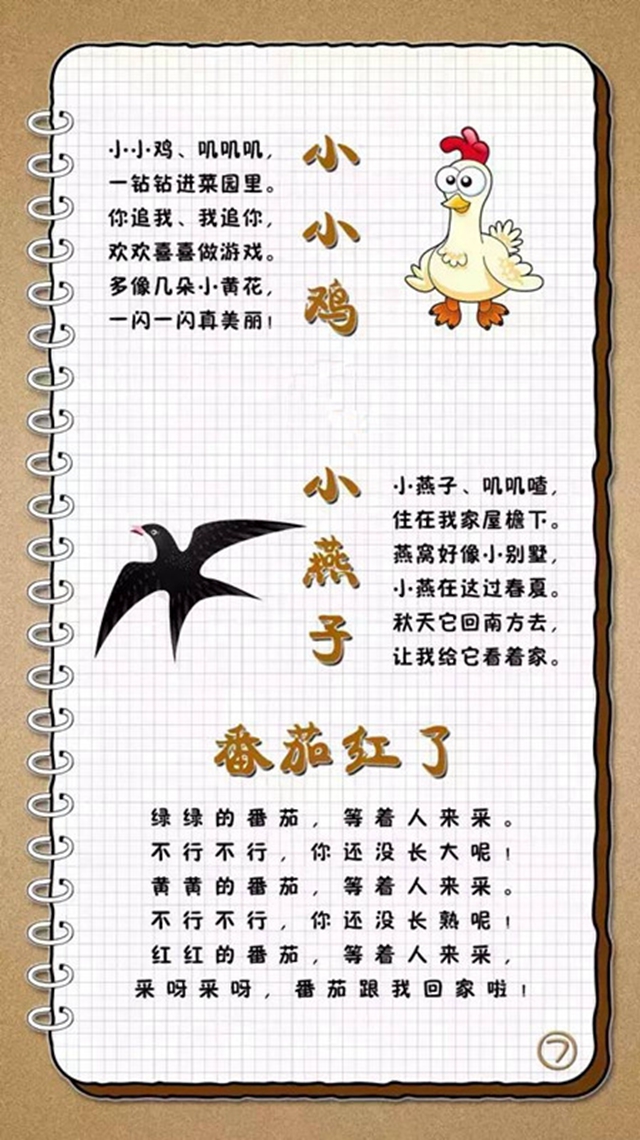 小小鸡
小小鸡、叽叽叽，
一钻钻进菜园里。
你追我、我追你，
欢欢喜喜做游戏。
多像几朵小黄花，
一闪一闪真美丽！
小燕子
小燕子、叽叽喳，
住在我家屋檐下。
燕窝好像小别墅，
小燕在这过春夏。
秋天它回南方去，
让我给它看着家。
番茄红了
绿绿的番茄，等着人来采。
不行不行，你还没长大呢！
黄黄的番茄，等着人来采。
不行不行，你还没长熟呢！
红红的番茄，等着人来采，
采呀采呀，番茄跟我回家啦！
7